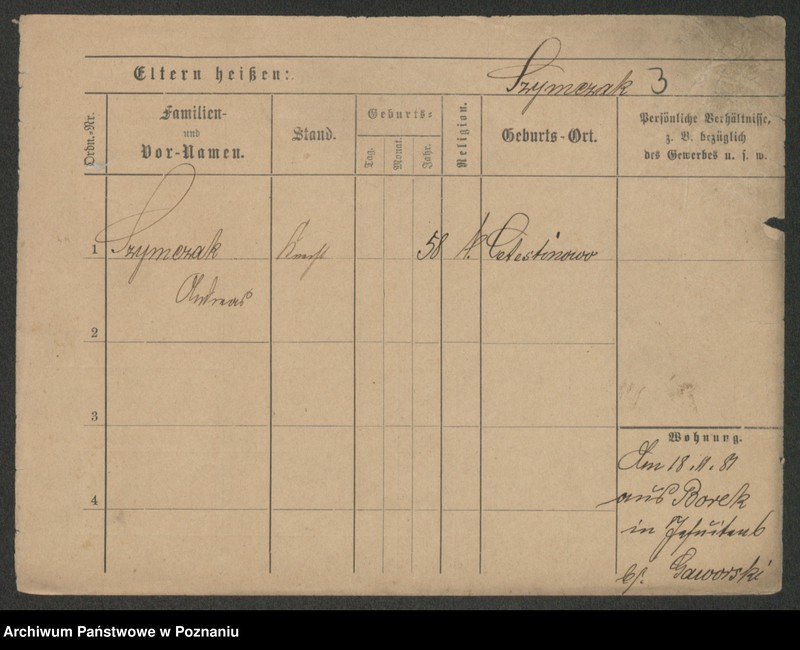 Eltern heißen:
Szymczak 3
Ordn.-Nr.
Familien-
und
Vor-Namen.
Stand.
Geburts-
Tag.
Monat.
Jahr.
Religion.
Geburts-Ort.
Persönliche Verhältnisse,
z. B. bezüglich
des Gewerbes u. s. w.
1 Szymczak Knecht 58 k. Celestinowo
Andreas
2
3
4
Wohnung.
Am 18.11.81
aus Borek
in Jesuiten 6
b/. Gaworski
Archiwum Państwowe w Poznaniu